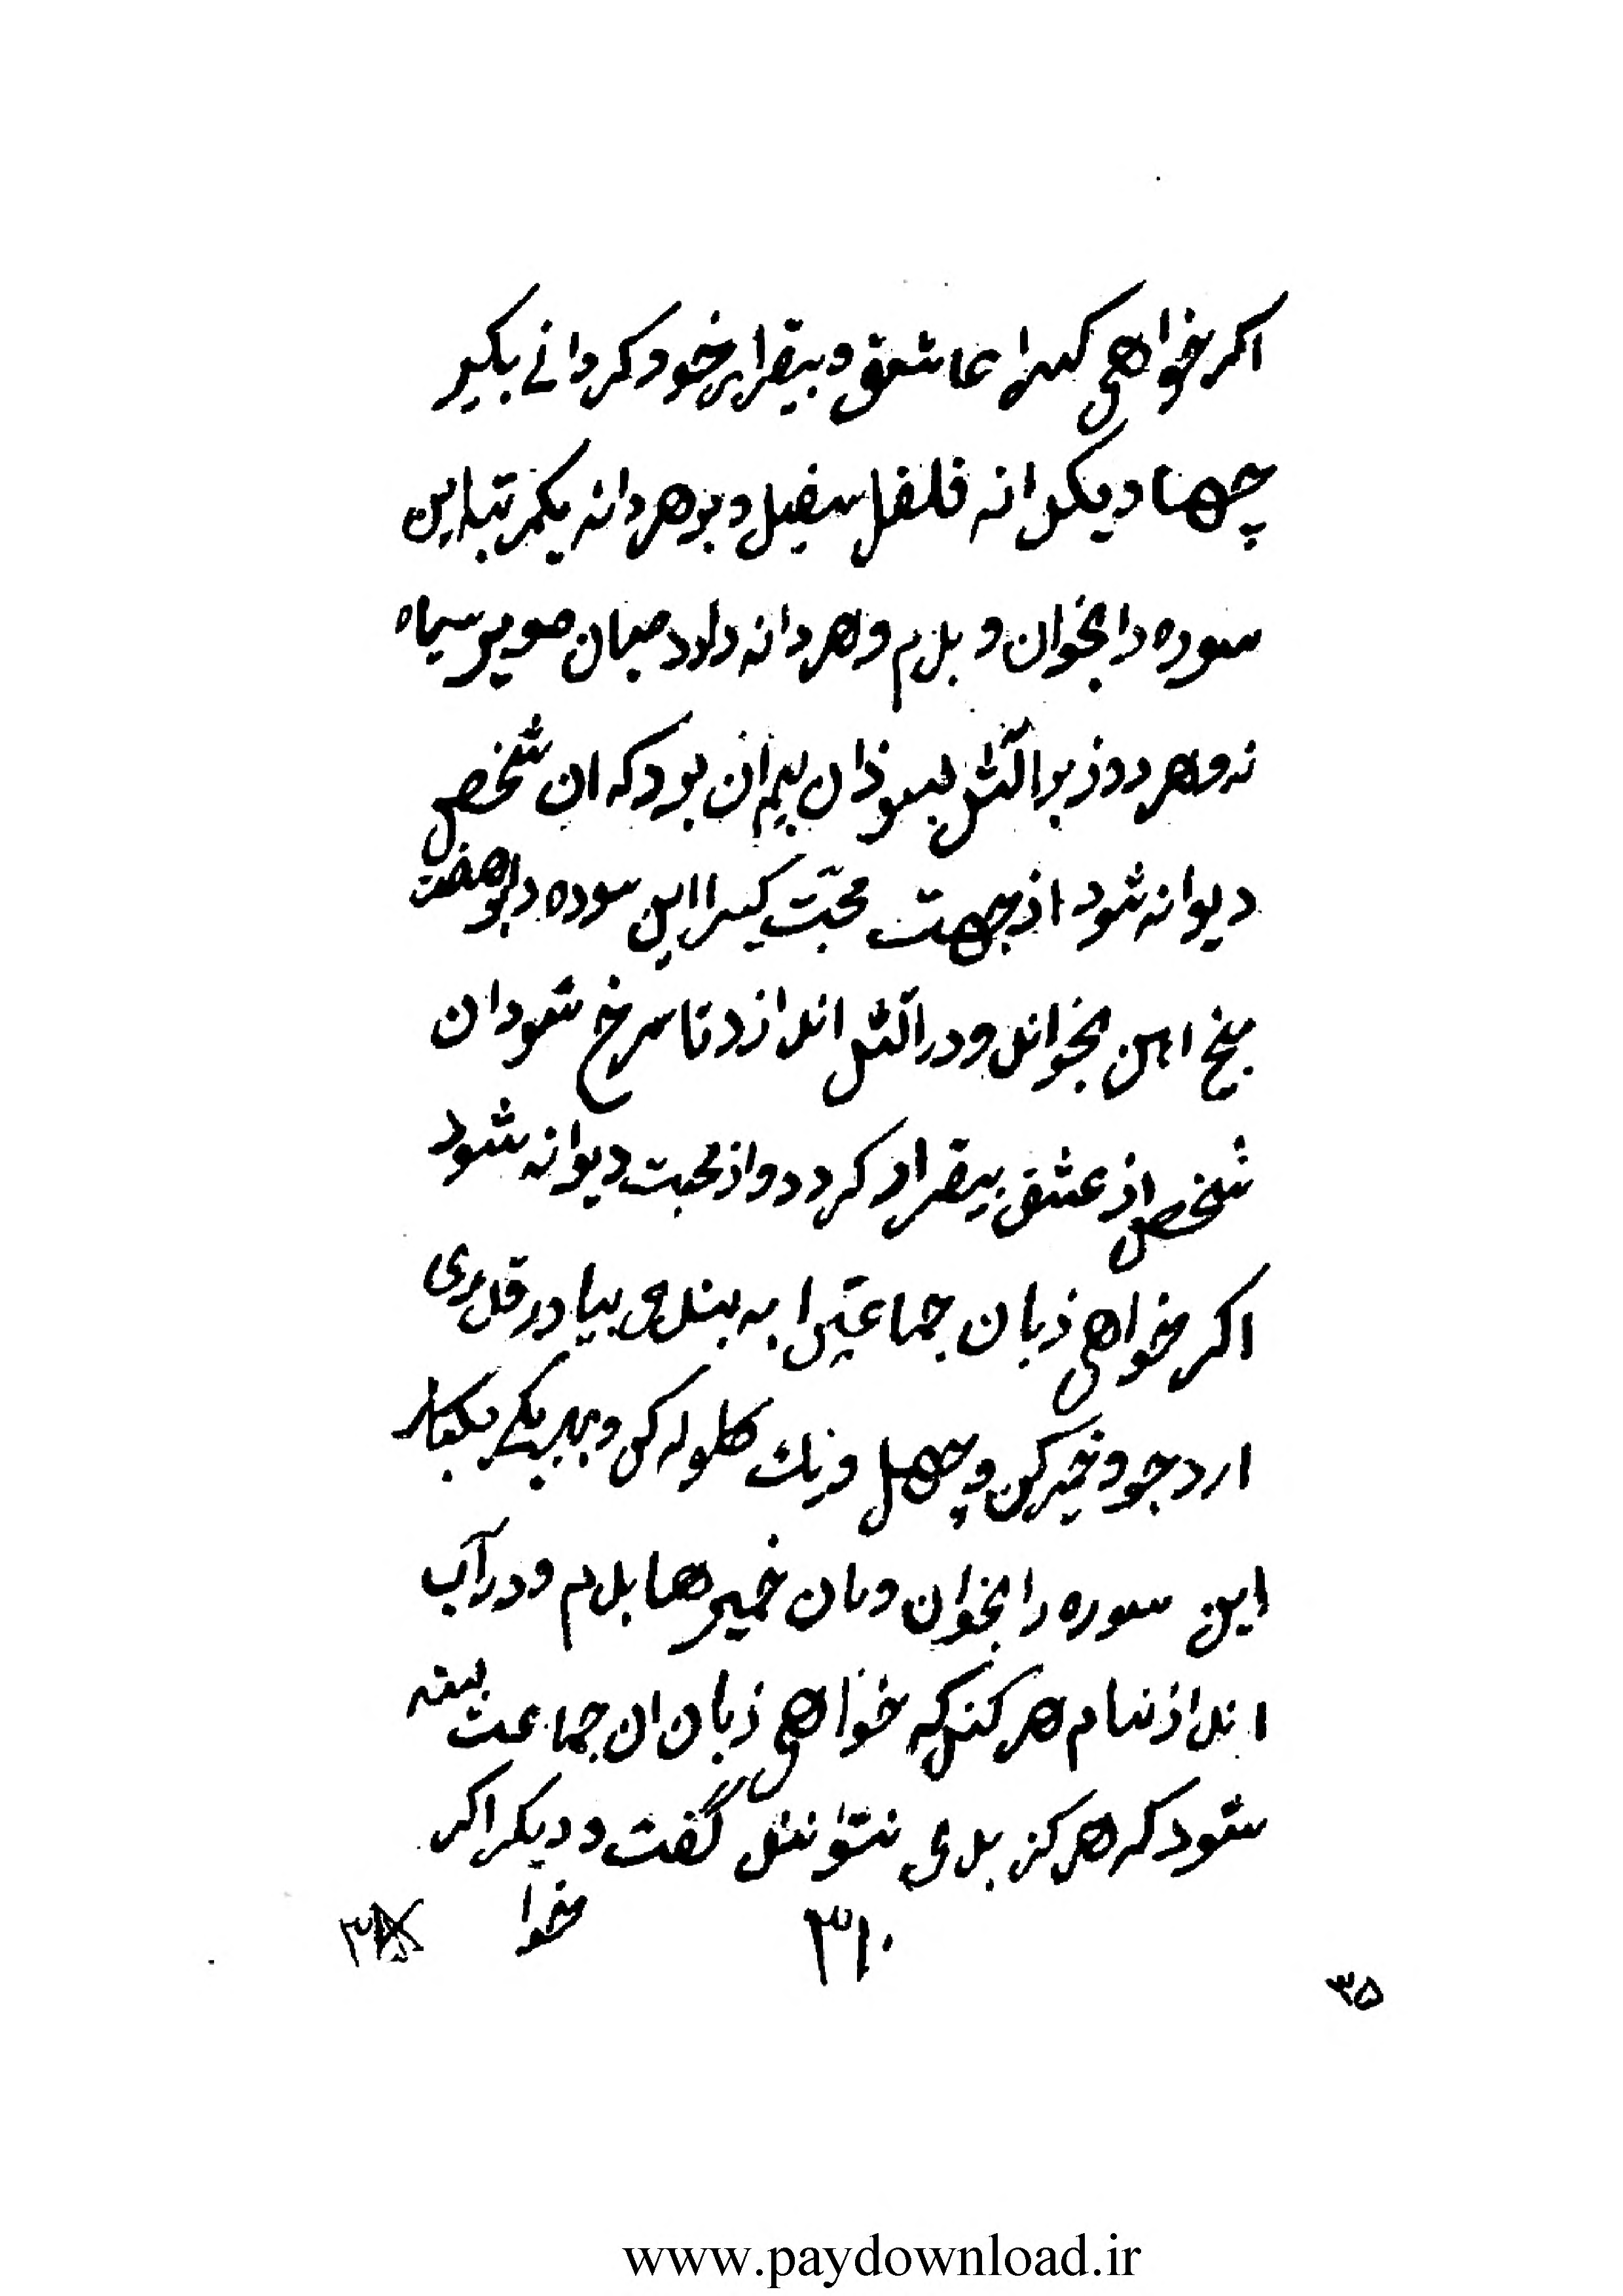 اکر خواهی کسرا عاشق و بیقرار خود کردانے بکیر
چهار دیکدانه فلفل سفید و بر هر دانه یکمرتبه این
سوره را بخوان و بدم و هر دانه را در میان موی سیاه
نه و هر روز بر آتش بسوزان بیم ان بود که ان شخص
دیوانه شود از جهت محبّت کیسرا این سوره را بر هفت
میخ اهن بخواند و در آتش اندازد تا سرخ شود ان
شخص از عشق بیقرار کردد و از محبت دیوانه شود
اکر خواهی زبان جماعتیرا به بندی بیاور قدری
ارد جو و خمیر کن و چهل و یک کلوله کن و بهر یکے یکبار
این سوره را بخوان و بان خمیرها بدم و در آب
انداز بنام هر کس که خواهی زبان ان جماعت بسته
شود که هرکز بدی نتوانند گفت و دیکر اکر
خوا
۳۱۰
۳۵
www.paydownload.ir